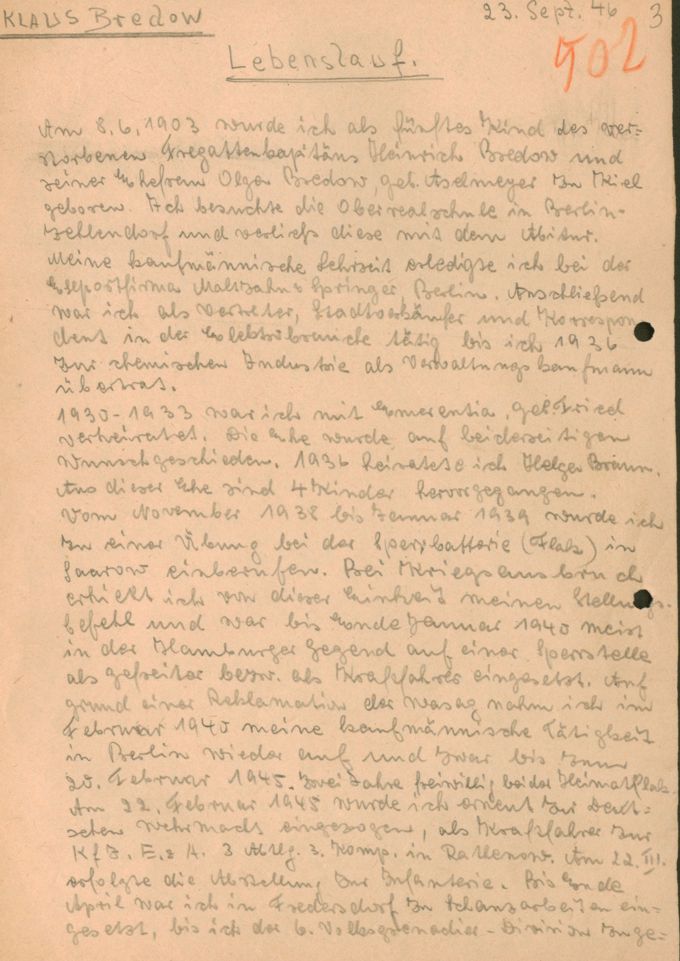 KLAUS Bredow
23. Sept. 46 3
502
Lebenslauf.
Am 8.6.1903 wurde ich als fünftes Kind des ver-
storbenen Fregattenkapitäns Heinrich Bredow und
seiner Ehefrau Olga Bredow, geb. Aselmeyer in Kiel
geboren. Ich besuchte die Oberrealschule in Berlin-
Zehlendorf und verließ diese mit dem Abitur.
Meine kaufmännische Lehrzeit erledigte ich bei der
Exportfirma Maltzahn & Springer, Berlin. Anschließend
war ich als Vertreter, Stadtverkäufer und Korrespon
dent in der Elektrobranche tätig bis ich 1936
zur chemischen Industrie als Verwaltungskaufmann
übertrat.
1930-1933 war ich mit Emerentia, geb. Fried
verheiratet. Die Ehe wurde auf beiderseitigen
Wunsch geschieden. 1936 heiratete ich Helga Braun.
Aus dieser Ehe sind 4 Kinder hervorgegangen.
Vom November 1938 bis Januar 1939 wurde ich
zu einer Übung bei der Sperrbatterie (Flak) in
Saarow einberufen. Bei Kriegsausbruch
erhielt ich von dieser Einheit meinen Stellungs-
befehl und war bis Ende Januar 1940 meist
in der Hamburger Gegend auf einer Sperrstelle
als Gefreiter bezw. als Kraftfahrer eingesetzt. Auf
grund einer Reklamation der Wasag nahm ich im
Februar 1940 meine kaufmännische Tätigkeit
in Berlin wieder auf und zwar bis zum
20. Februar 1945. Zwei Jahre freiwillig bei der Heimatflak.
Am 22. Februar 1945 wurde ich erneut zur Deut-
schen Wehrmacht eingezogen, als Kraftfahrer zur
Kfz. E. & A. 3 Abtlg. 3. Komp. in Rathenow. Am 22. III.
erfolgte die Abstellung zur Infanterie. Bis Ende
April war ich in Fredersdorf zu Schanzarbeiten ein-
gesetzt, bis ich der 6. Volksgrenadier-Division zuge-